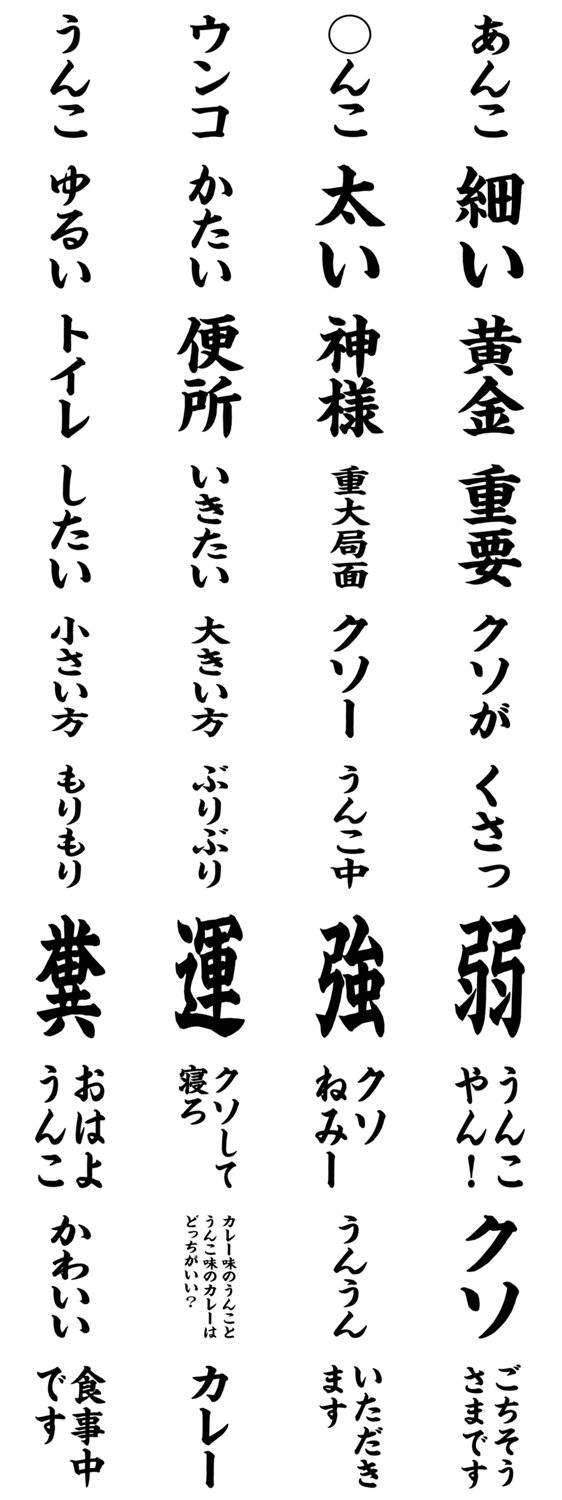 うんこ
ウンコ
◯んこ
あんこ
ゆるい
かたい
太い
細い
トイレ
便所
神様
黄金
したい
いきたい
重大局面
重要
小さい方
大きい方
クソー
クソが
もりもり
ぶりぶり
うんこ中
くさっ
糞
運
強
弱
おはよ
うんこ
クソして
寝ろ
クソ
ねみー
うんこ
やん!
かわいい
カレー味のうんこと
うんこ味のカレーは
どっちがいい?
うんうん
クソ
食事中
です
カレー
いただき
ます
ごちそう
さまです